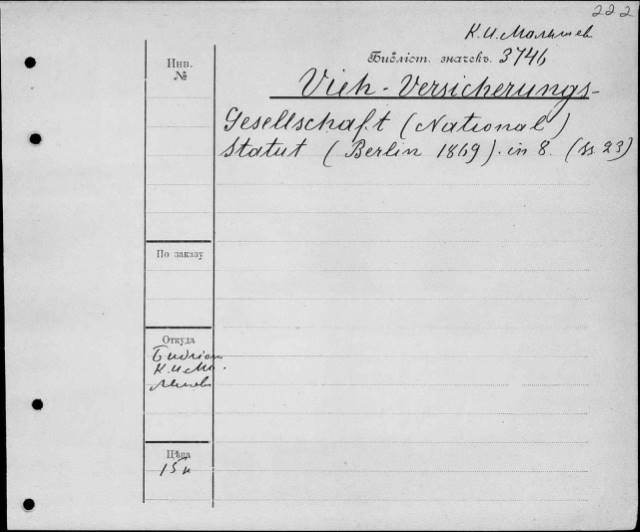 222
К.И.Малышев
Инв.
№
Библіот. значекъ. 3746
Vieh-Versicherungs-
Gesellschaft (National)
Statut (Berlin 1869). in 8. (ss. 23)
По заказу
Откуда
К.И.Ма
лышев
Цѣна
15 к